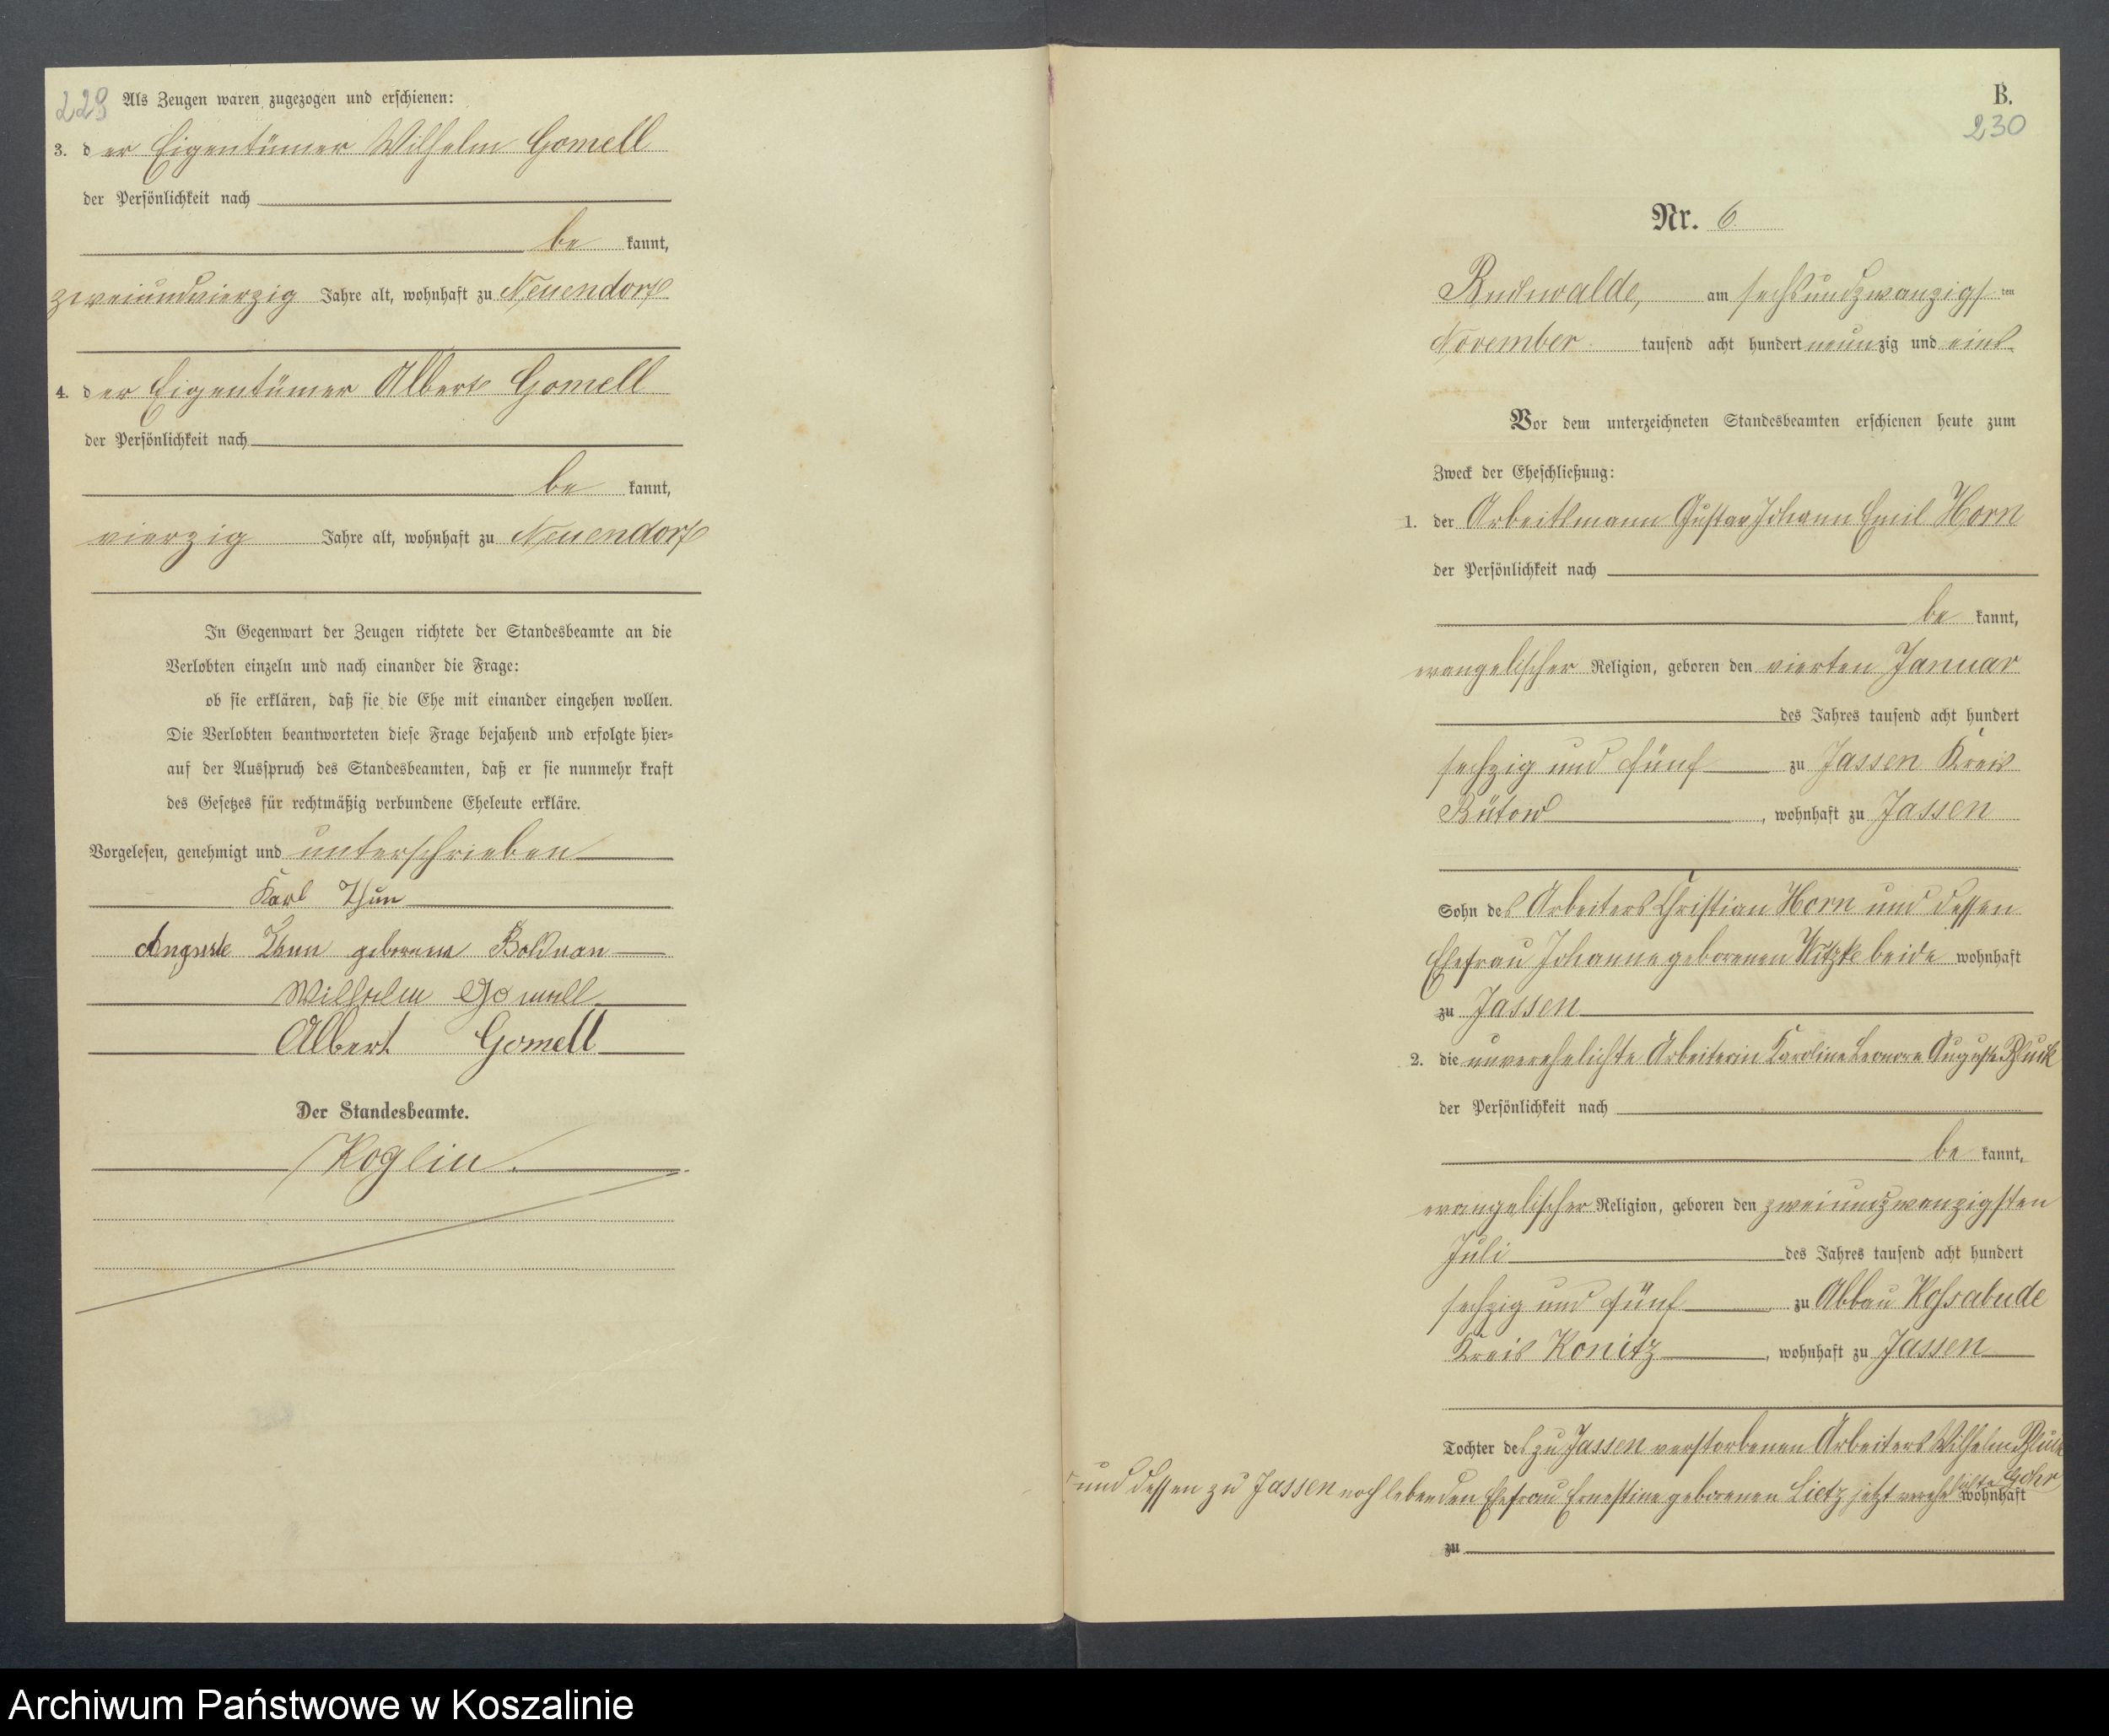 229
Als Zeugen waren zugezogen und erschienen:
3. der Eigentümer Wilhelm Gomell
der Persönlichkeit nach
be kannt,
zweiundvierzig Jahre alt, wohnhaft zu Neuendorf
4. der Eigentümer Albert Gomell
der Persönlichkeit nach
be kannt,
vierzig Jahre alt, wohnhaft zu Neuendorf
In Gegenwart der Zeugen richtete der Standesbeamte an die
Verlobten einzeln und nach einander die Frage:
ob sie erklären, daß sie die Ehe mit einander eingehen wollen.
Die Verlobten beantworteten diese Frage bejahend und erfolgte hier-
auf der Ausspruch des Standesbeamten, daß er sie nunmehr kraft
des Gesetzes für rechtmäßig verbundene Eheleute erkläre.
Vorgelesen, genehmigt und unterschrieben
Karl Thun
Auguste Thun geborene
Wilhelm Gomell
Albert Gomell
Der Standesbeamte.
Koglin.
B.
230
Nr. 6
am sechsundzwanzigsten
November tausend acht hundert neunzig und eins.
Vor dem unterzeichneten Standesbeamten erschienen heute zum
Zweck der Eheschließung:
1. der Arbeitsmann Gustav Johann Emil Horn
der Persönlichkeit nach
be kannt,
evangelischer Religion, geboren den vierten Januar
des Jahres tausend acht hundert
sechzig und fünf zu Jassen Kreis
Bütow, wohnhaft zu Jassen
Sohn des Arbeiters Christian Horn und dessen
Ehefrau Johanne geborenen Witzke beide wohnhaft
zu Jassen
2. die unverehelichte Arbeiterin Karoline Leonore Auguste
der Persönlichkeit nach
be kannt,
evangelischer Religion, geboren den zweiundzwanzigsten
Juli des Jahres tausend acht hundert
sechzig und fünf zu Abbau Kossabude
Kreis Konitz, wohnhaft zu Jassen
Tochter des zu Jassen verstorbenen Arbeiters Wilhelm
und dessen zu Jassen noch lebenden Ehefrau Ernestine geborenen Lietz jetzt verehelichte Gohr wohnhaft
zu
Archiwum Państwowe w Koszalinie